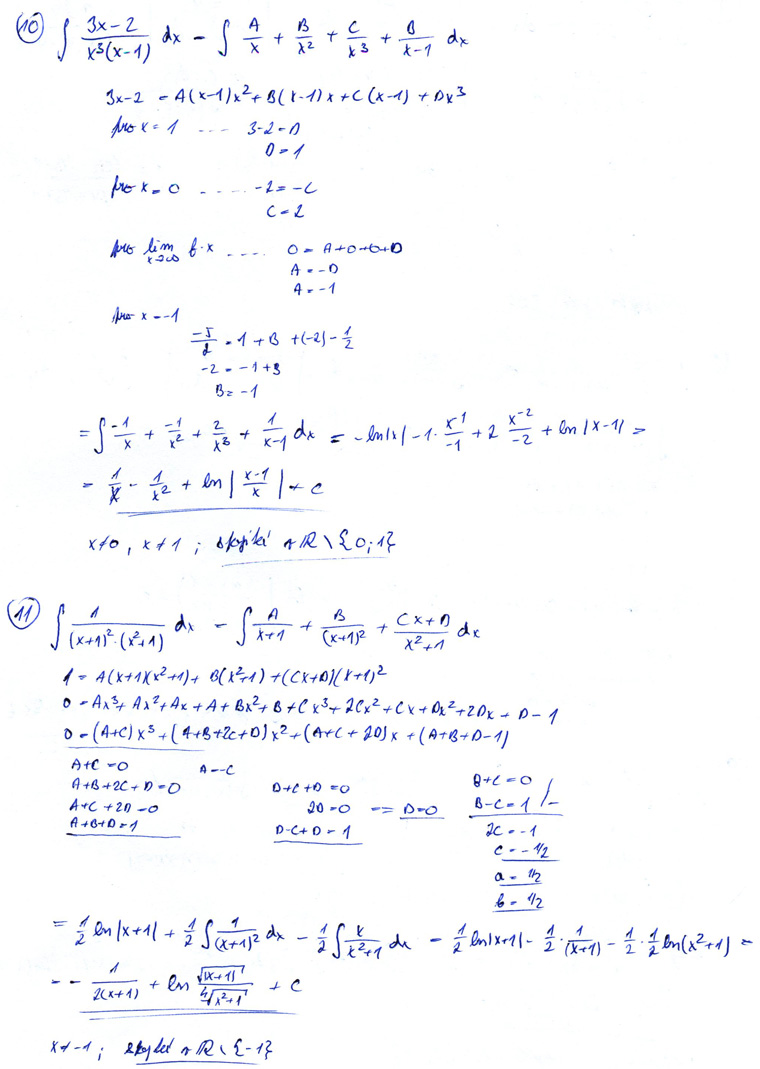 10) ∫ (3x-2)/(x³(x-1)) dx = ∫ A/x + B/x² + C/x³ + B/(x-1) dx
3x-2 = A(x-1)x² + B(x-1)x + C(x-1) + Dx³
pro x = 1 .... 3-2 = D
D = 1
pro x = 0 ...... -2 = -C
C = 2
pro lim x→∞ f·x .... 0 = A+0+0+D
A = -D
A = -1
pro x = -1
-5/2 = 1 + B + (-2) - 1/2
-2 = -1+B
B = -1
= ∫ -1/x + -1/x² + 2/x³ + 1/(x-1) dx = -ln|x| - 1·x⁻¹/-1 + 2 x⁻²/-2 + ln|x-1| =
= 1/x - 1/x² + ln|(x-1)/x| + C
x≠0, x≠1 ; spojité v ℝ \ {0;1}
11) ∫ 1/((x+1)²·(x²+1)) dx = ∫ A/(x+1) + B/(x+1)² + (Cx+D)/(x²+1) dx
1 = A(x+1)(x²+1) + B(x²+1) + (Cx+D)(x+1)²
0 = Ax³ + Ax² + Ax + A + Bx² + B + Cx³ + 2Cx² + Cx + Dx² + 2Dx + D - 1
0 = (A+C)x³ + (A+B+2C+D)x² + (A+C+2D)x + (A+B+D-1)
A+C = 0 A = -C
A+B+2C+D = 0
A+C+2D = 0
A+B+D = 1
B+C+D = 0
2D = 0 => D = 0
B-C+D = 1
B+C = 0
B-C = 1 /-
2C = -1
C = -1/2
a = 1/2
b = 1/2
= 1/2 ln|x+1| + 1/2 ∫ 1/(x+1)² dx - 1/2 ∫ x/(x²+1) dx = 1/2 ln|x+1| - 1/2 · 1/(x+1) - 1/2 · 1/2 ln(x²+1) =
= - 1/(2(x+1)) + ln √|x+1| / ⁴√(x²+1) + C
x≠-1 ; spojité v ℝ \ {-1}